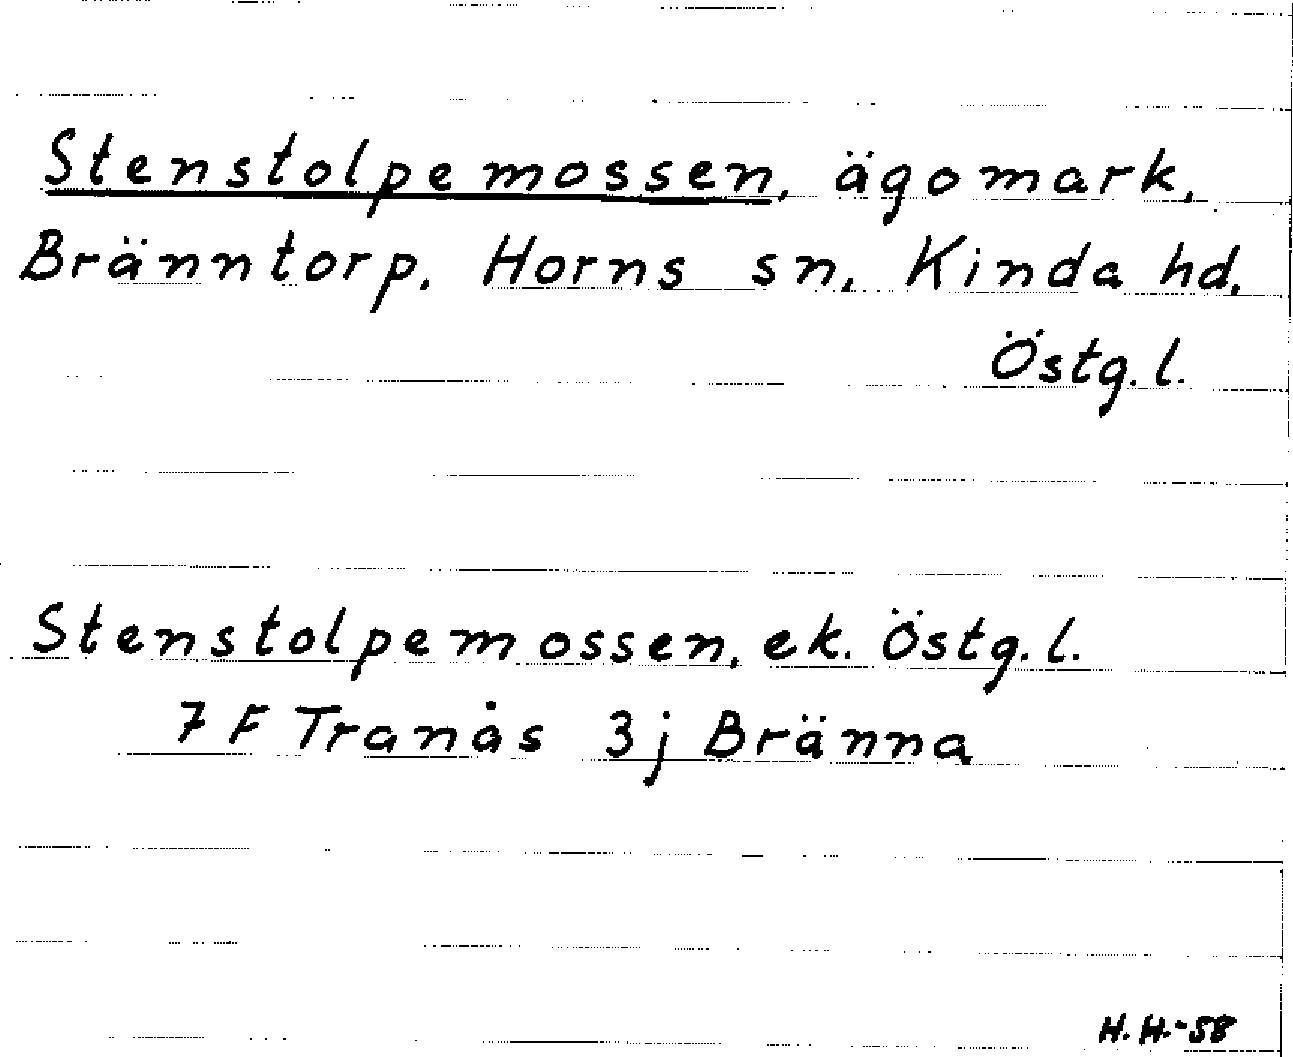 Stenstolpemossen, ägomark,
Bränntorp. Horns sn, Kinda hd.
Östg. l.
Stenstolpemossen, ek. Östg. l.
7 F Tranås 3j Bränna
H. H.-58